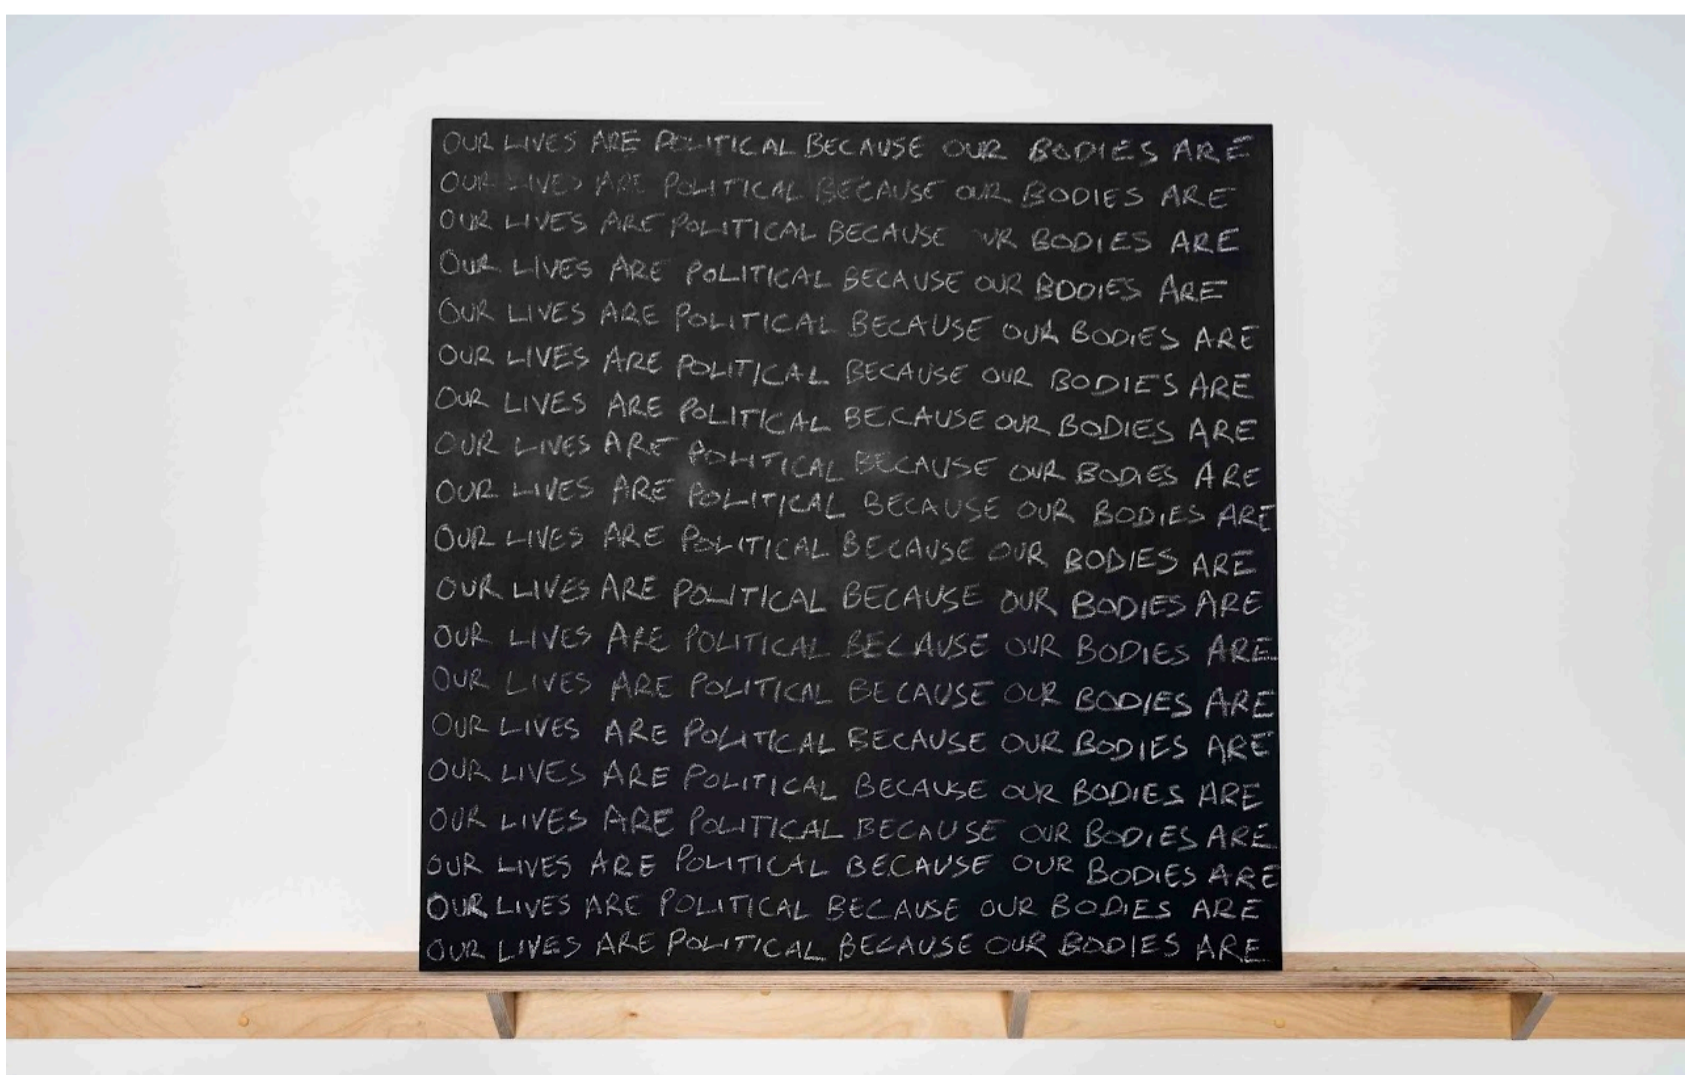 OUR LIVES ARE POLITICAL BECAUSE OUR BODIES ARE
OUR LIVES ARE POLITICAL BECAUSE OUR BODIES ARE
OUR LIVES ARE POLITICAL BECAUSE OUR BODIES ARE
OUR LIVES ARE POLITICAL BECAUSE OUR BODIES ARE
OUR LIVES ARE POLITICAL BECAUSE OUR BODIES ARE
OUR LIVES ARE POLITICAL BECAUSE OUR BODIES ARE
OUR LIVES ARE POLITICAL BECAUSE OUR BODIES ARE
OUR LIVES ARE POLITICAL BECAUSE OUR BODIES ARE
OUR LIVES ARE POLITICAL BECAUSE OUR BODIES ARE
OUR LIVES ARE POLITICAL BECAUSE OUR BODIES ARE
OUR LIVES ARE POLITICAL BECAUSE OUR BODIES ARE
OUR LIVES ARE POLITICAL BECAUSE OUR BODIES ARE
OUR LIVES ARE POLITICAL BECAUSE OUR BODIES ARE
OUR LIVES ARE POLITICAL BECAUSE OUR BODIES ARE
OUR LIVES ARE POLITICAL BECAUSE OUR BODIES ARE
OUR LIVES ARE POLITICAL BECAUSE OUR BODIES ARE
OUR LIVES ARE POLITICAL BECAUSE OUR BODIES ARE
OUR LIVES ARE POLITICAL BECAUSE OUR BODIES ARE
OUR LIVES ARE POLITICAL BECAUSE OUR BODIES ARE